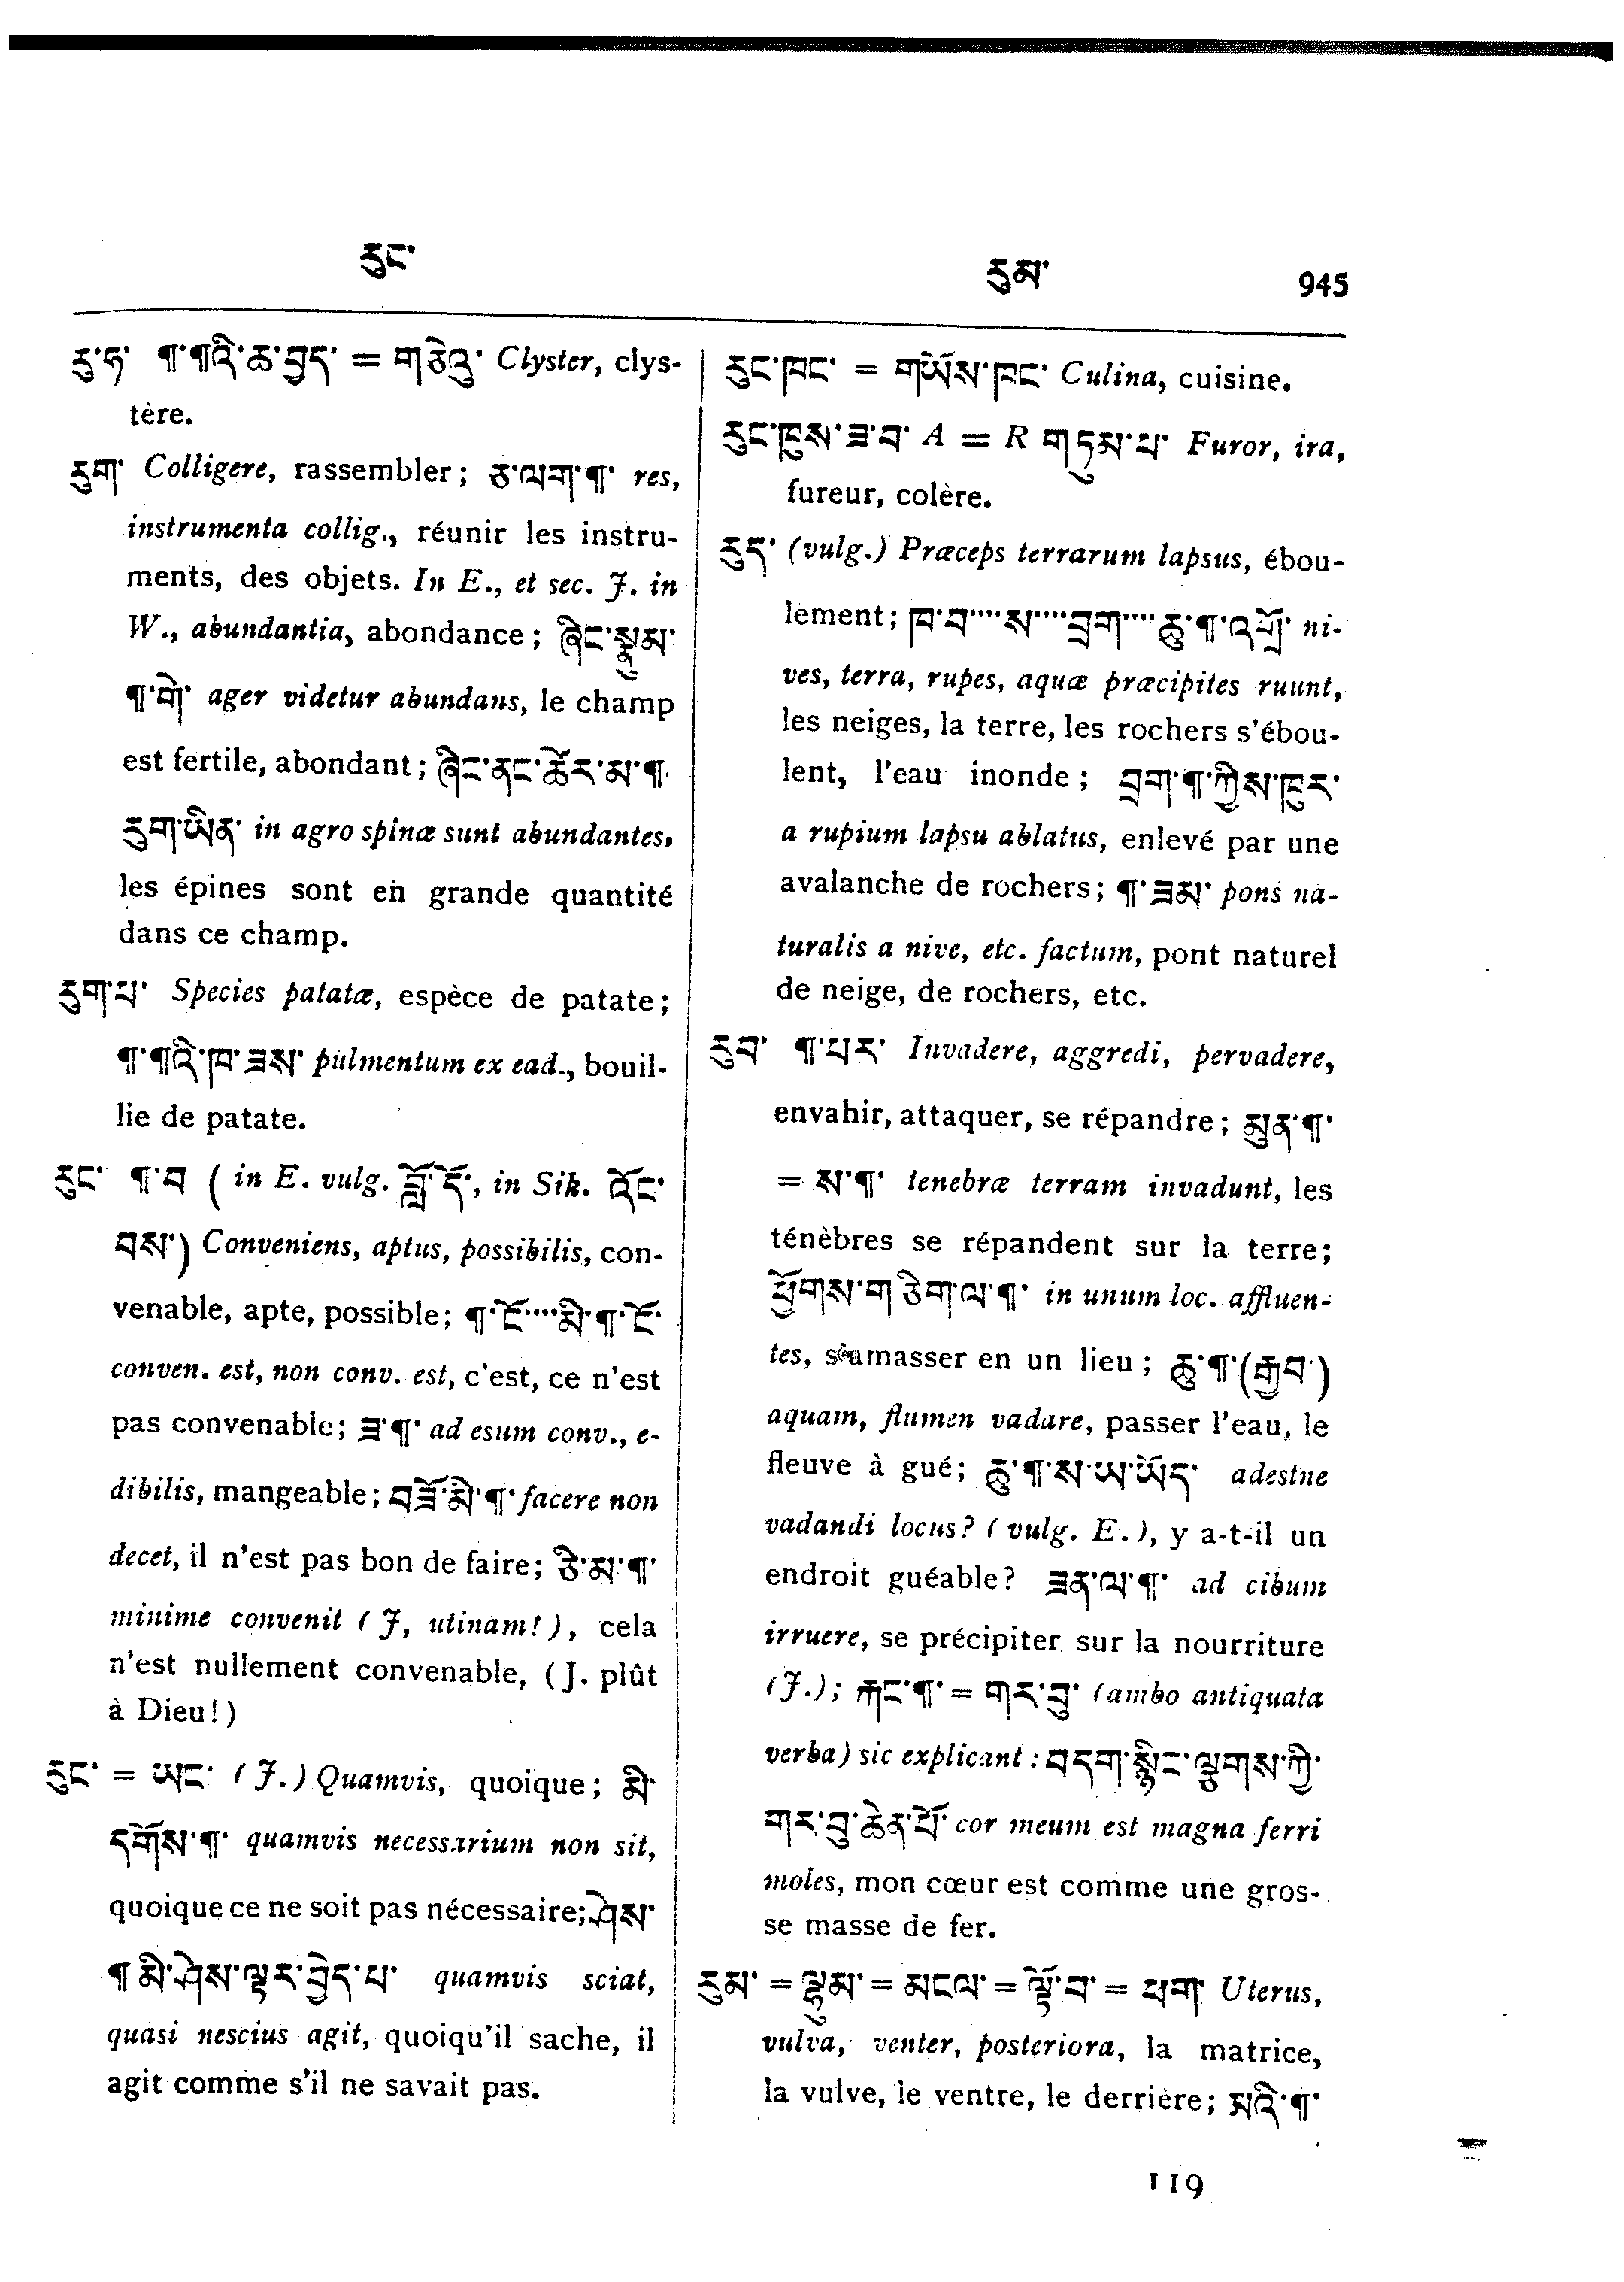 རུང་
རུམ་ 945
རུ་ཏ་ ¶་¶འི་ཆ་བྱད་ = གཅེའུ་ Clyster, clys-
tère.
རུག་ Colligere, rassembler; ཅ་ལག་¶་ res,
instrumenta collig., réunir les instru-
ments, des objets. In E., et sec. J. in
W., abundantia, abondance; ཞིང་སྣུམ་
¶་གེ་ ager videtur abundans, le champ
est fertile, abondant; ཞིང་ནང་ཚེར་མ་¶་
རུག་ཡིན་ in agro spinæ sunt abundantes,
les épines sont en grande quantité
dans ce champ.
རུག་པ་ Species patatæ, espèce de patate;
¶་¶འི་ཁ་ཟས་ pulmentum ex ead., bouil-
lie de patate.
རུང་ ¶་བ (in E. vulg. བློ་དོ་, in Sik. འོང་
བས་) Conveniens, aptus, possibilis, con-
venable, apte, possible; ¶་ངོ་....མི་¶་ངོ་
conven. est, non conv. est, c'est, ce n'est
pas convenable; ཟ་¶་ ad esum conv., e-
dibilis, mangeable; བཟོ་མི་¶་ facere non
decet, il n'est pas bon de faire; ཅི་མ་¶་
minime convenit (J, utinam!), cela
n'est nullement convenable, (J. plût
à Dieu!)
རུང་ = ཡང་ (J.) Quamvis, quoique; མི་
དགོས་¶་ quamvis necessarium non sit,
quoique ce ne soit pas nécessaire; ཤེས་
¶ མི་ཤེས་ལྟར་བྱེད་པ་ quamvis sciat,
quasi nescius agit, quoiqu'il sache, il
agit comme s'il ne savait pas.
རུང་ཁང་ = གཡོས་ཁང་ Culina, cuisine.
རུང་ཁུས་ཟ་བ་ A = R གཏུམ་པ་ Furor, ira,
fureur, colère.
རུད་ (vulg.) Præceps terrarum lapsus, ébou-
lement; ཁ་བ་...ས་...བྲག་...ཆུ་¶་འཕྲོ་ ni-
ves, terra, rupes, aquæ præcipites ruunt,
les neiges, la terre, les rochers s'ébou-
lent, l'eau inonde; བྲག་¶་ཀྱིས་ཁུར་
a rupium lapsu ablatus, enlevé par une
avalanche de rochers; ¶་ཟམ་ pons na-
turalis a nive, etc. factum, pont naturel
de neige, de rochers, etc.
རུབ་ ¶་པར་ Invadere, aggredi, pervadere,
envahir, attaquer, se répandre; མུན་¶་
= ས་¶་ tenebræ terram invadunt, les
ténèbres se répandent sur la terre;
ཕྱོགས་གཅིག་ལ་¶་ in unum loc. affluen-
tes, s'amasser en un lieu; ཆུ་¶་(རྒྱབ་)
aquam, flumen vadare, passer l'eau, le
fleuve à gué; ཆུ་¶་ས་ཡ་ཡོད་ adestne
vadandi locus? (vulg. E.), y a-t-il un
endroit guéable? ཟན་ལ་¶་ ad cibum
irruere, se précipiter sur la nourriture
(J.); རྐང་¶་ = གར་བུ་ (ambo antiquata
verba) sic explicant: བདག་སྙིང་ལྕགས་ཀྱི་
གར་བུ་ཆེན་པོ་ cor meum est magna ferri
moles, mon cœur est comme une gros-
se masse de fer.
རུམ་ = ལྷུམ་ = མངལ་ = ལྟོ་བ་ = ཕག་ Uterus,
vulva, venter, posteriora, la matrice,
la vulve, le ventre, le derrière; མའི་¶་
119